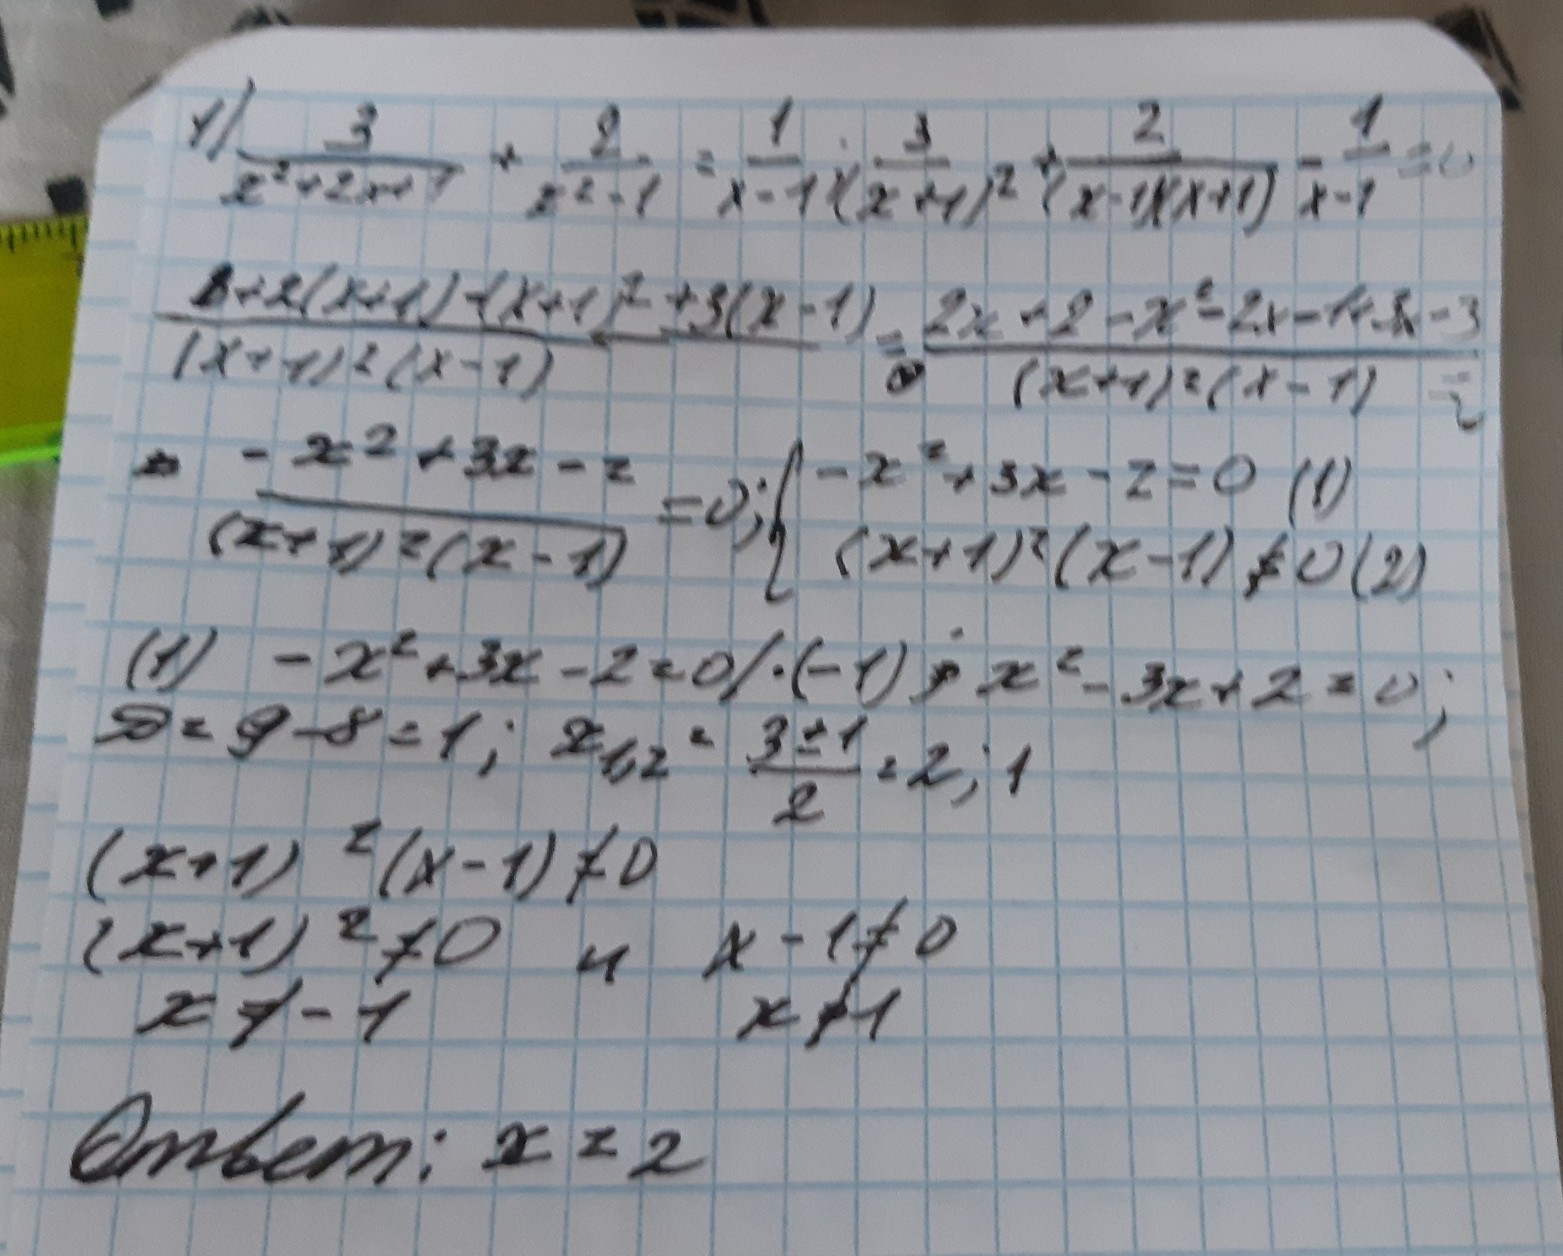 1) 3/(x²+2x+1) + 2/(x²-1) = 1/(x-1); 3/(x+1)² + 2/((x-1)(x+1)) - 1/(x-1) = 0
(2(x+1)-(x+1)²+3(x-1))/((x+1)²(x-1)) = (2x+2-x²-2x-1+3x-3)/((x+1)²(x-1)) =
= (-x²+3x-2)/((x+1)²(x-1)) = 0; { -x²+3x-2=0 (1)
(x+1)²(x-1)≠0 (2)
(1) -x²+3x-2=0 /·(-1); x²-3x+2=0;
D=9-8=1; x₁,₂ = (3±1)/2 = 2; 1
(x+1)²(x-1)≠0
(x+1)²≠0 и x-1≠0
x≠-1 x≠1
Ответ: x=2